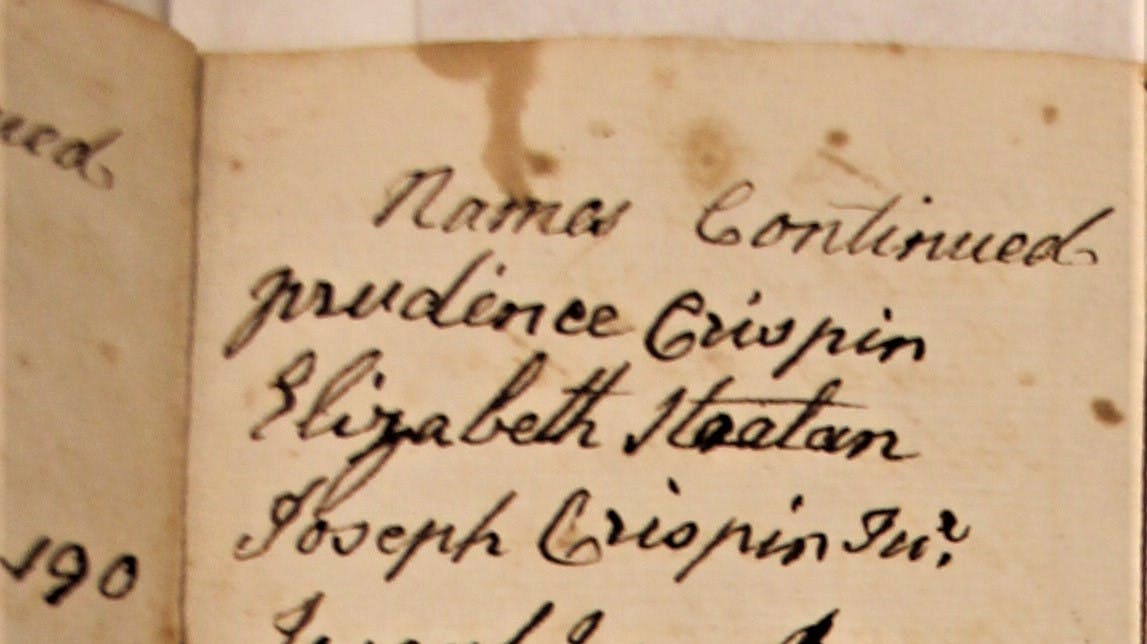 ued
190
Names Continued
prudence Crispin
Elizabeth
Joseph Crispin Jur.